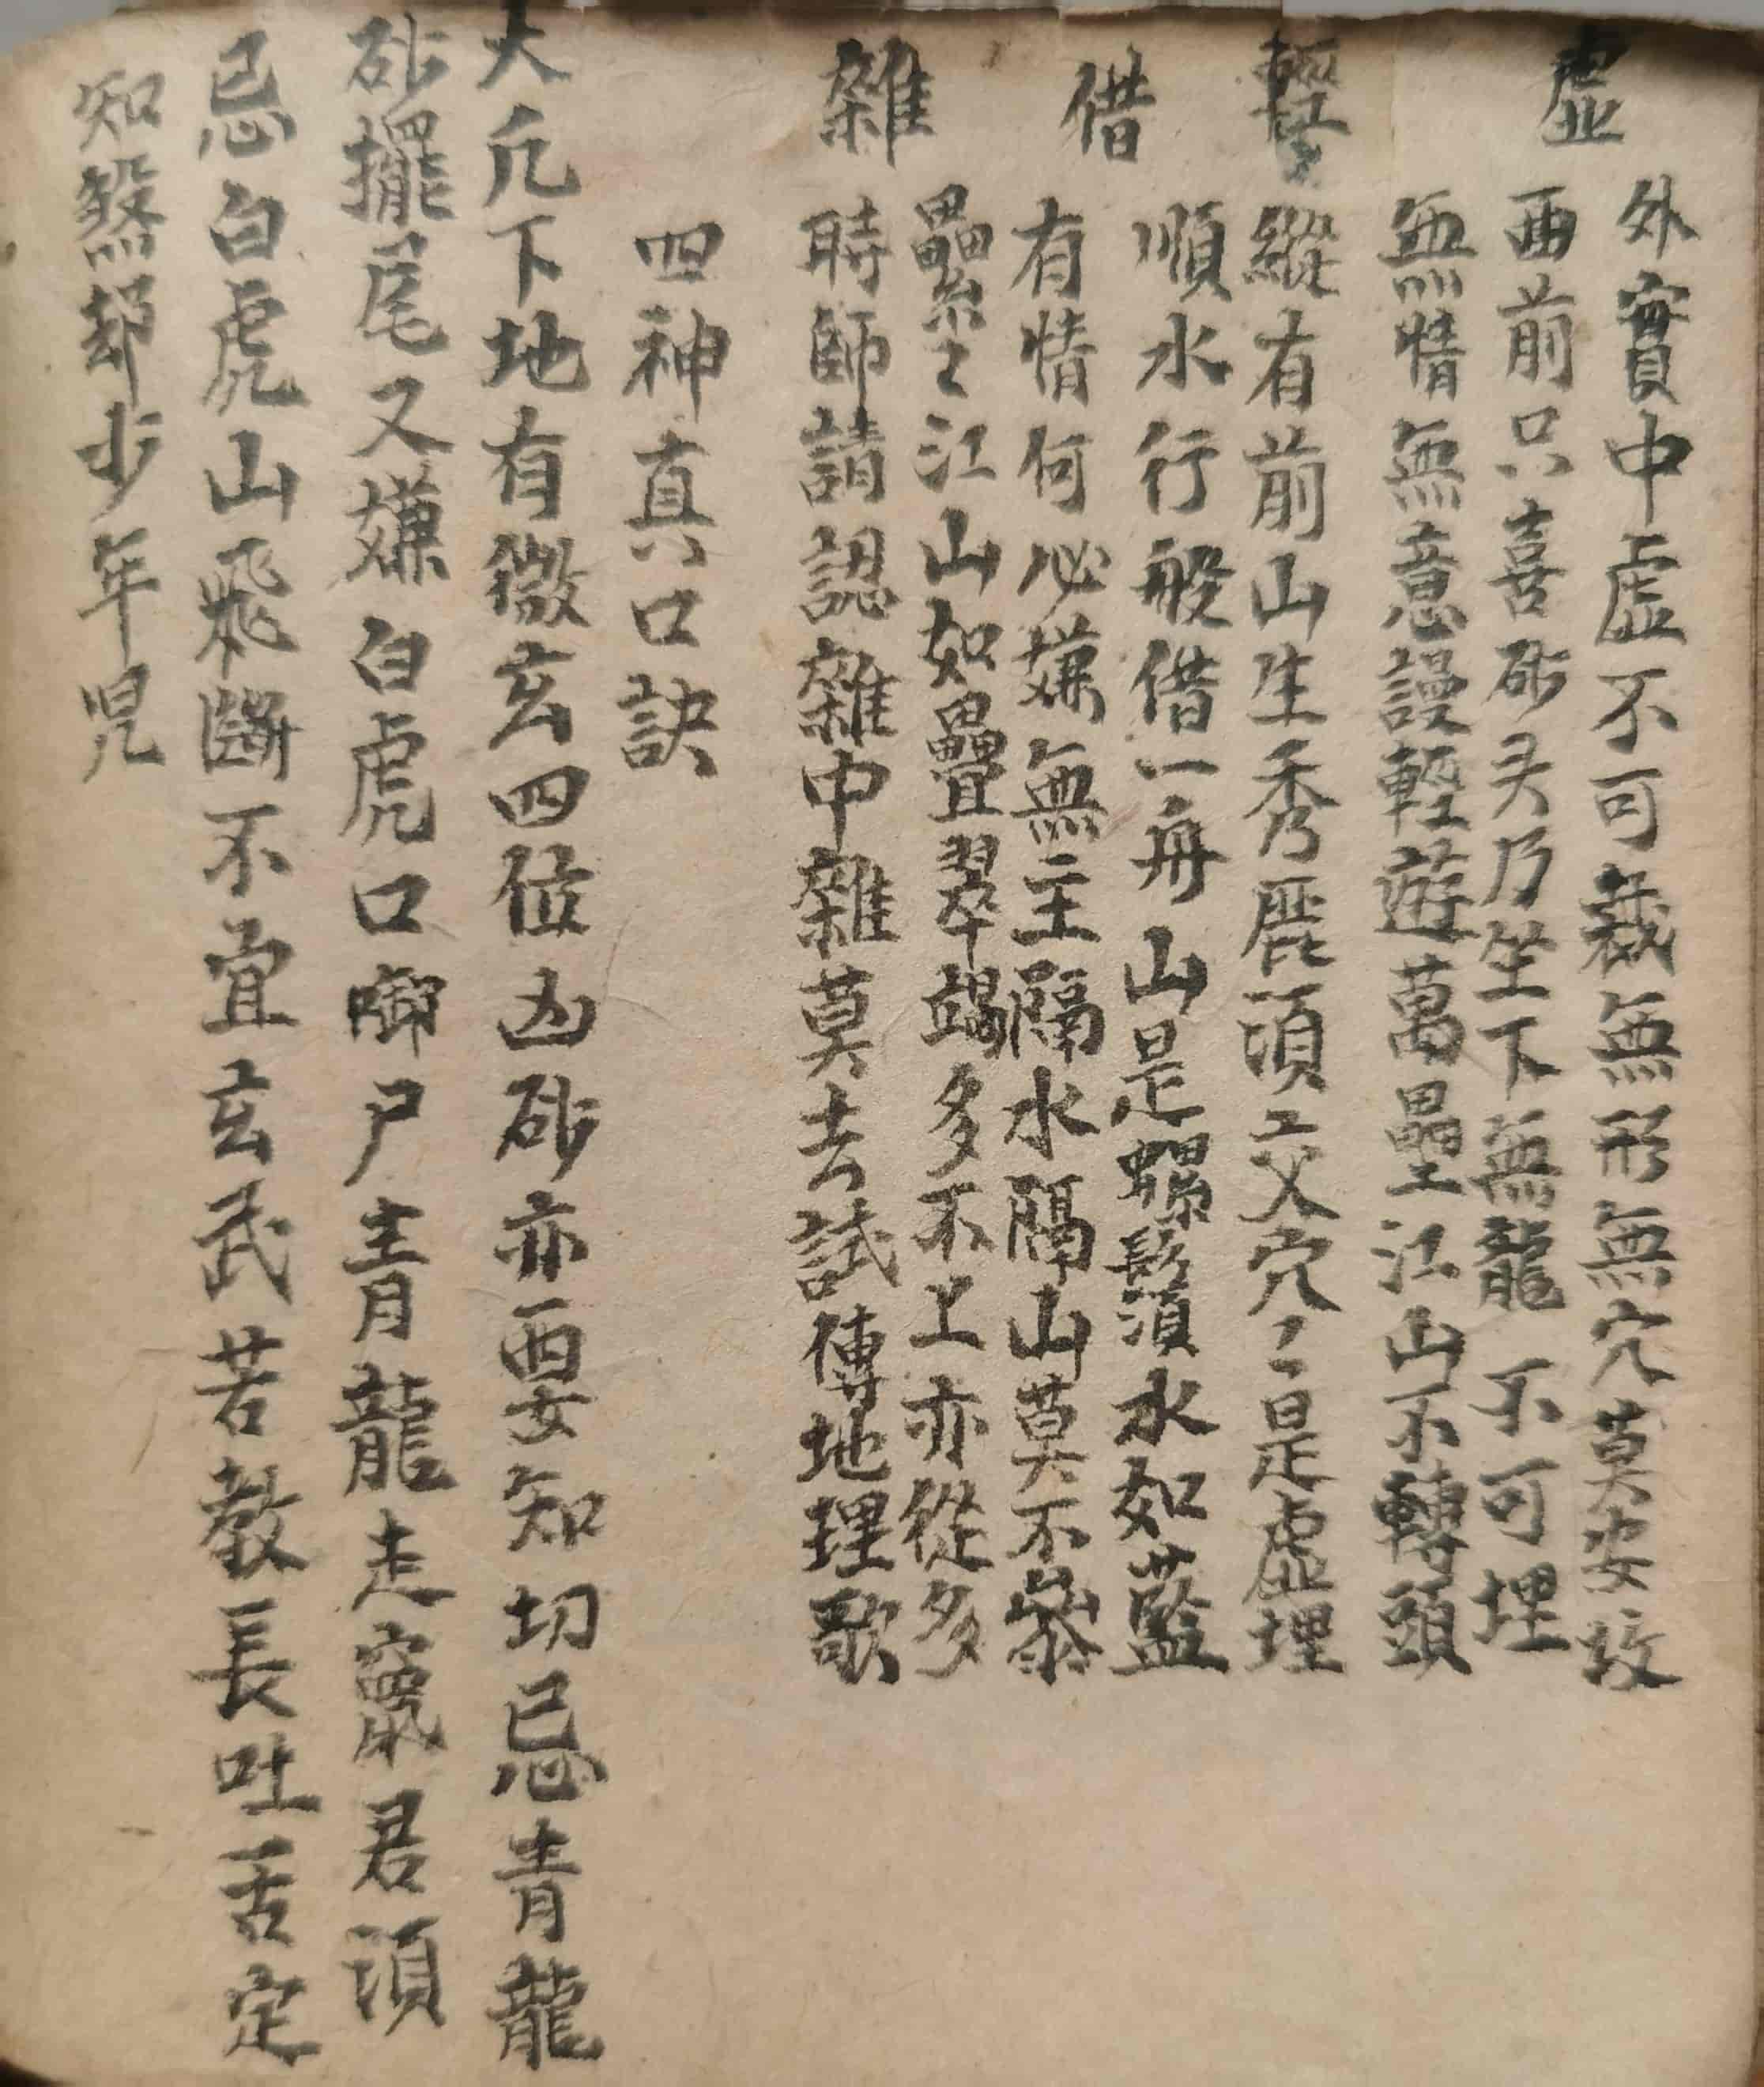 虛
外實中虛不可裁無形無穴莫安坟
西前只喜砂头乃坐下無龍不可埋
輕
無情無意謾輕遊萬壘江山不轉頭
縱有前山生秀𫝊須交穴〻是虛埋
借
順水行般借一舟山是螺鬆須水如藍
有情何必嫌無主隔水隔山莫不參
雜
纍〻江山如疊翠竭多不上亦從多
時師請認雜中雜莫去試傳地理歌
四神真口訣
大凢下地有微玄四位凶砂亦要知切忌青龍
砂擺尾又嫌白虎口啣尸青龍走竄君須
忌白虎山飛斷不宜玄武若教長吐舌定
知煞却少年児